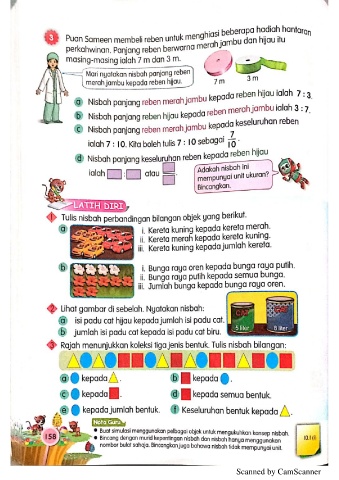 3 Puan Sameen membeli reben untuk menghiasi beberapa hadiah hantaran
perkahwinan. Panjang reben berwarna merah jambu dan hijau itu
masing-masing ialah 7 m dan 3 m.
Mari nyatakan nisbah panjang reben
merah jambu kepada reben hijau.
7 m 3 m
a Nisbah panjang reben merah jambu kepada reben hijau ialah 7 : 3.
b Nisbah panjang reben hijau kepada reben merah jambu ialah 3 : 7.
c Nisbah panjang reben merah jambu kepada keseluruhan reben
ialah 7 : 10. Kita boleh tulis 7 : 10 sebagai 7/10.
d Nisbah panjang keseluruhan reben kepada reben hijau
ialah atau
Adakah nisbah ini
mempunyai unit ukuran?
Bincangkan.
LATIH DIRI
1 Tulis nisbah perbandingan bilangan objek yang berikut.
a
i. Kereta kuning kepada kereta merah.
ii. Kereta merah kepada kereta kuning.
iii. Kereta kuning kepada jumlah kereta.
b
i. Bunga raya oren kepada bunga raya putih.
ii. Bunga raya putih kepada semua bunga.
iii. Jumlah bunga kepada bunga raya oren.
2 Lihat gambar di sebelah. Nyatakan nisbah:
a isi padu cat hijau kepada jumlah isi padu cat.
b jumlah isi padu cat kepada isi padu cat biru.
5 liter
3 Rajah menunjukkan koleksi tiga jenis bentuk. Tulis nisbah bilangan:
a kepada .
b kepada .
c kepada .
d kepada semua bentuk.
e kepada jumlah bentuk.
f Keseluruhan bentuk kepada .
Nota Guru
• Buat simulasi menggunakan pelbagai objek untuk mengukuhkan konsep nisbah.
• Bincang dengan murid kepentingan nisbah dan nisbah hanya menggunakan
nombor bulat sahaja. Bincangkan juga bahawa nisbah tidak mempunyai unit.
158
Scanned by CamScanner